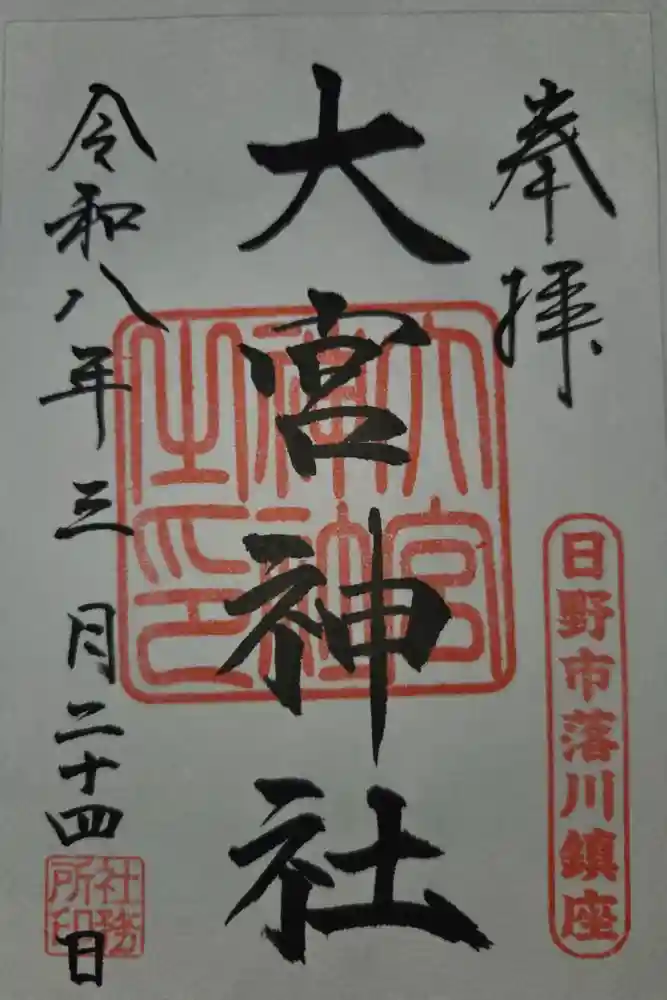 奉拝
日野市落川鎮座
大宮神社
大宮神社之印
令和八年三月二十四日
社務所印